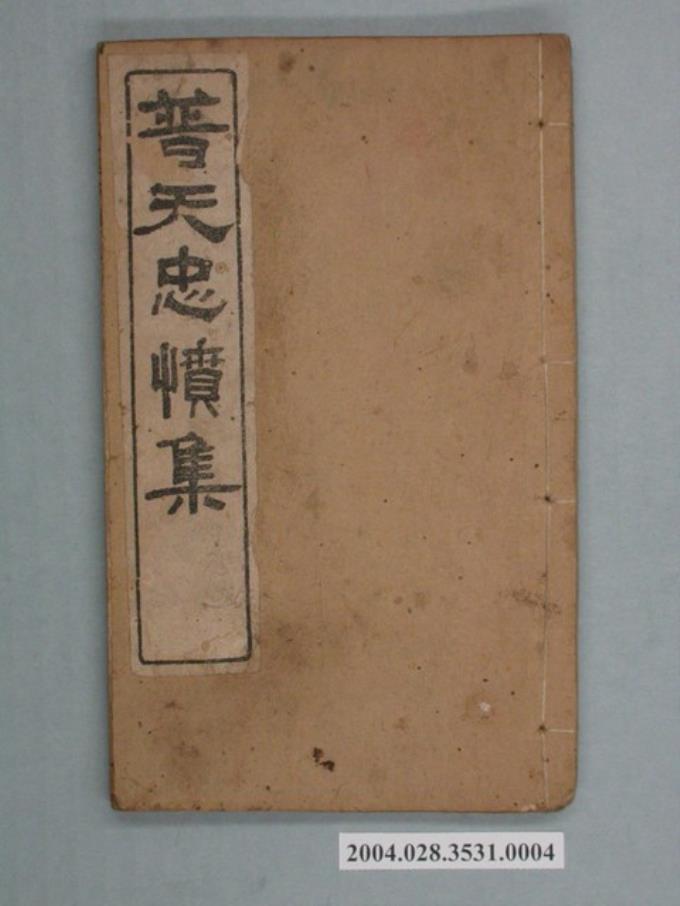 普天忠憤集
2004.028.3531.0004